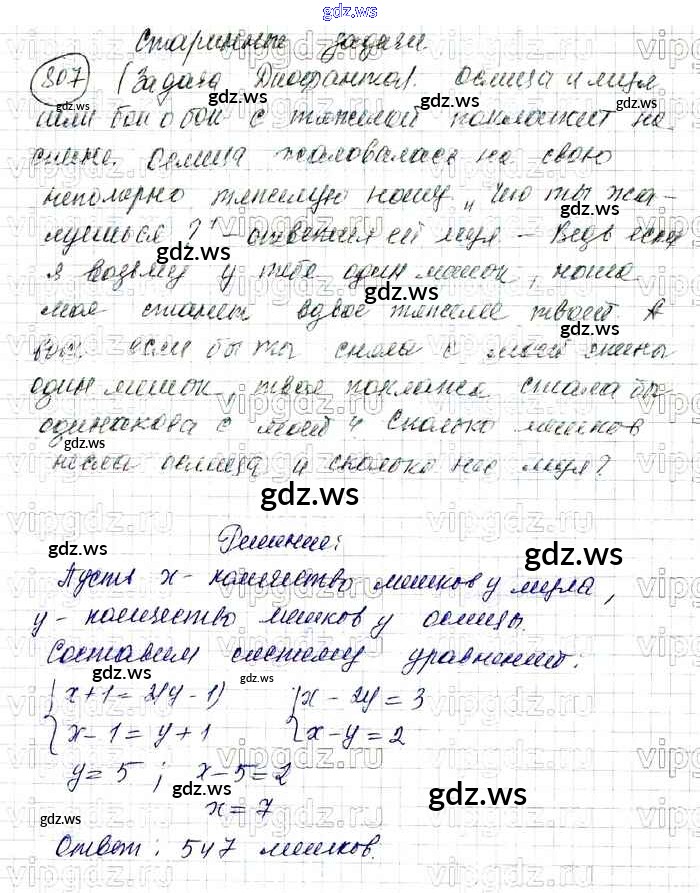 gdz.ws
Старинные задачи.
807 (Задача Диофанта). Ослица и мул
шли бок о бок с тяжелой поклажей на
спине. Ослица жаловалась на свою
непомерно тяжелую ношу. „Что ты жа-
луешься?" – ответил ей мул – Ведь если
я возьму у тебя один мешок, ноша
моя станет вдвое тяжелее твоей. А
вот если бы ты сняла с моей спины
один мешок, твоя поклажа стала бы
одинакова с моей". Сколько мешков
несла ослица и сколько нес мул?
Решение:
Пусть x - количество мешков у мула,
y - количество мешков у ослицы.
Составим систему уравнений:
{ x+1=2(y-1) { x-2y=3
{ x-1=y+1 { x-y=2
y=5 ; x-5=2
x=7
Ответ: 5 и 7 мешков.